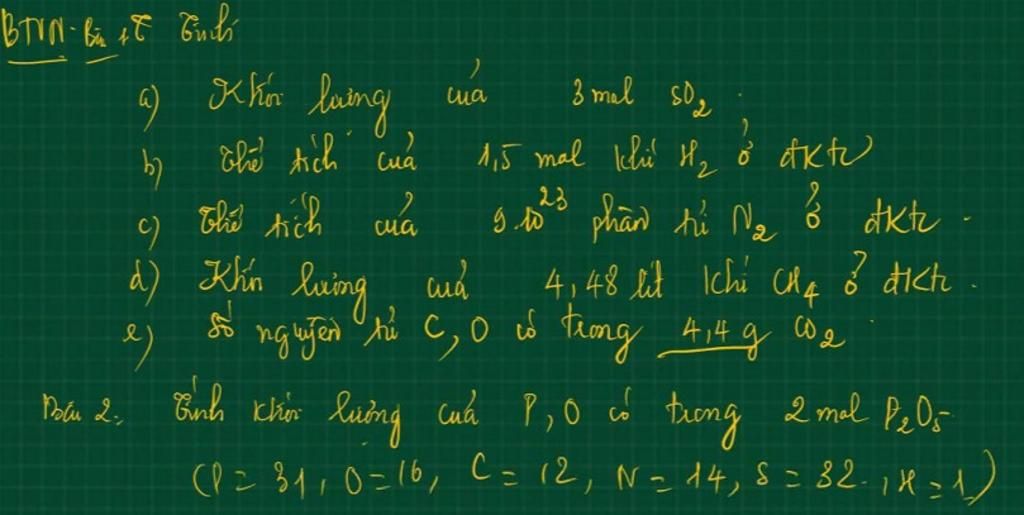 BTVN. Bài 1: Tính
a) Khối lượng của 3 mol SO2.
b) Thể tích của 1,5 mol khí H2 ở đktc
c) Thể tích của 9.10²³ phân tử N2 ở đktc.
d) Khối lượng của 4,48 lít khí CH4 ở đktc.
e) Số nguyên tử C, O có trong 4,4 g CO2.
Bài 2: Tính khối lượng của P, O có trong 2 mol P2O5
(P = 31, O = 16, C = 12, N = 14, S = 32, H = 1)